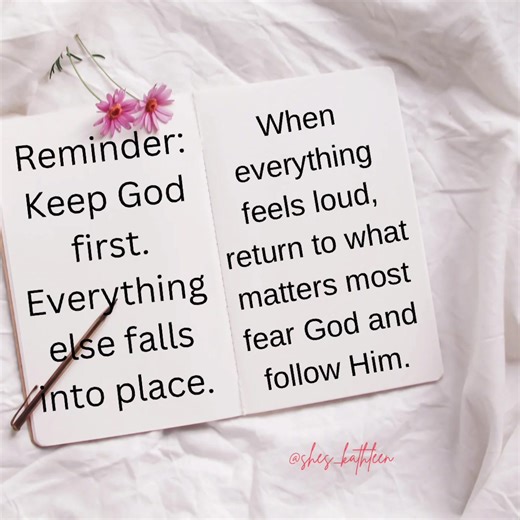 Reminder:
Keep God
first.
Everything
else falls
into place.
When
everything
feels loud,
return to what
matters most
fear God and
follow Him.
@shes_kathleen